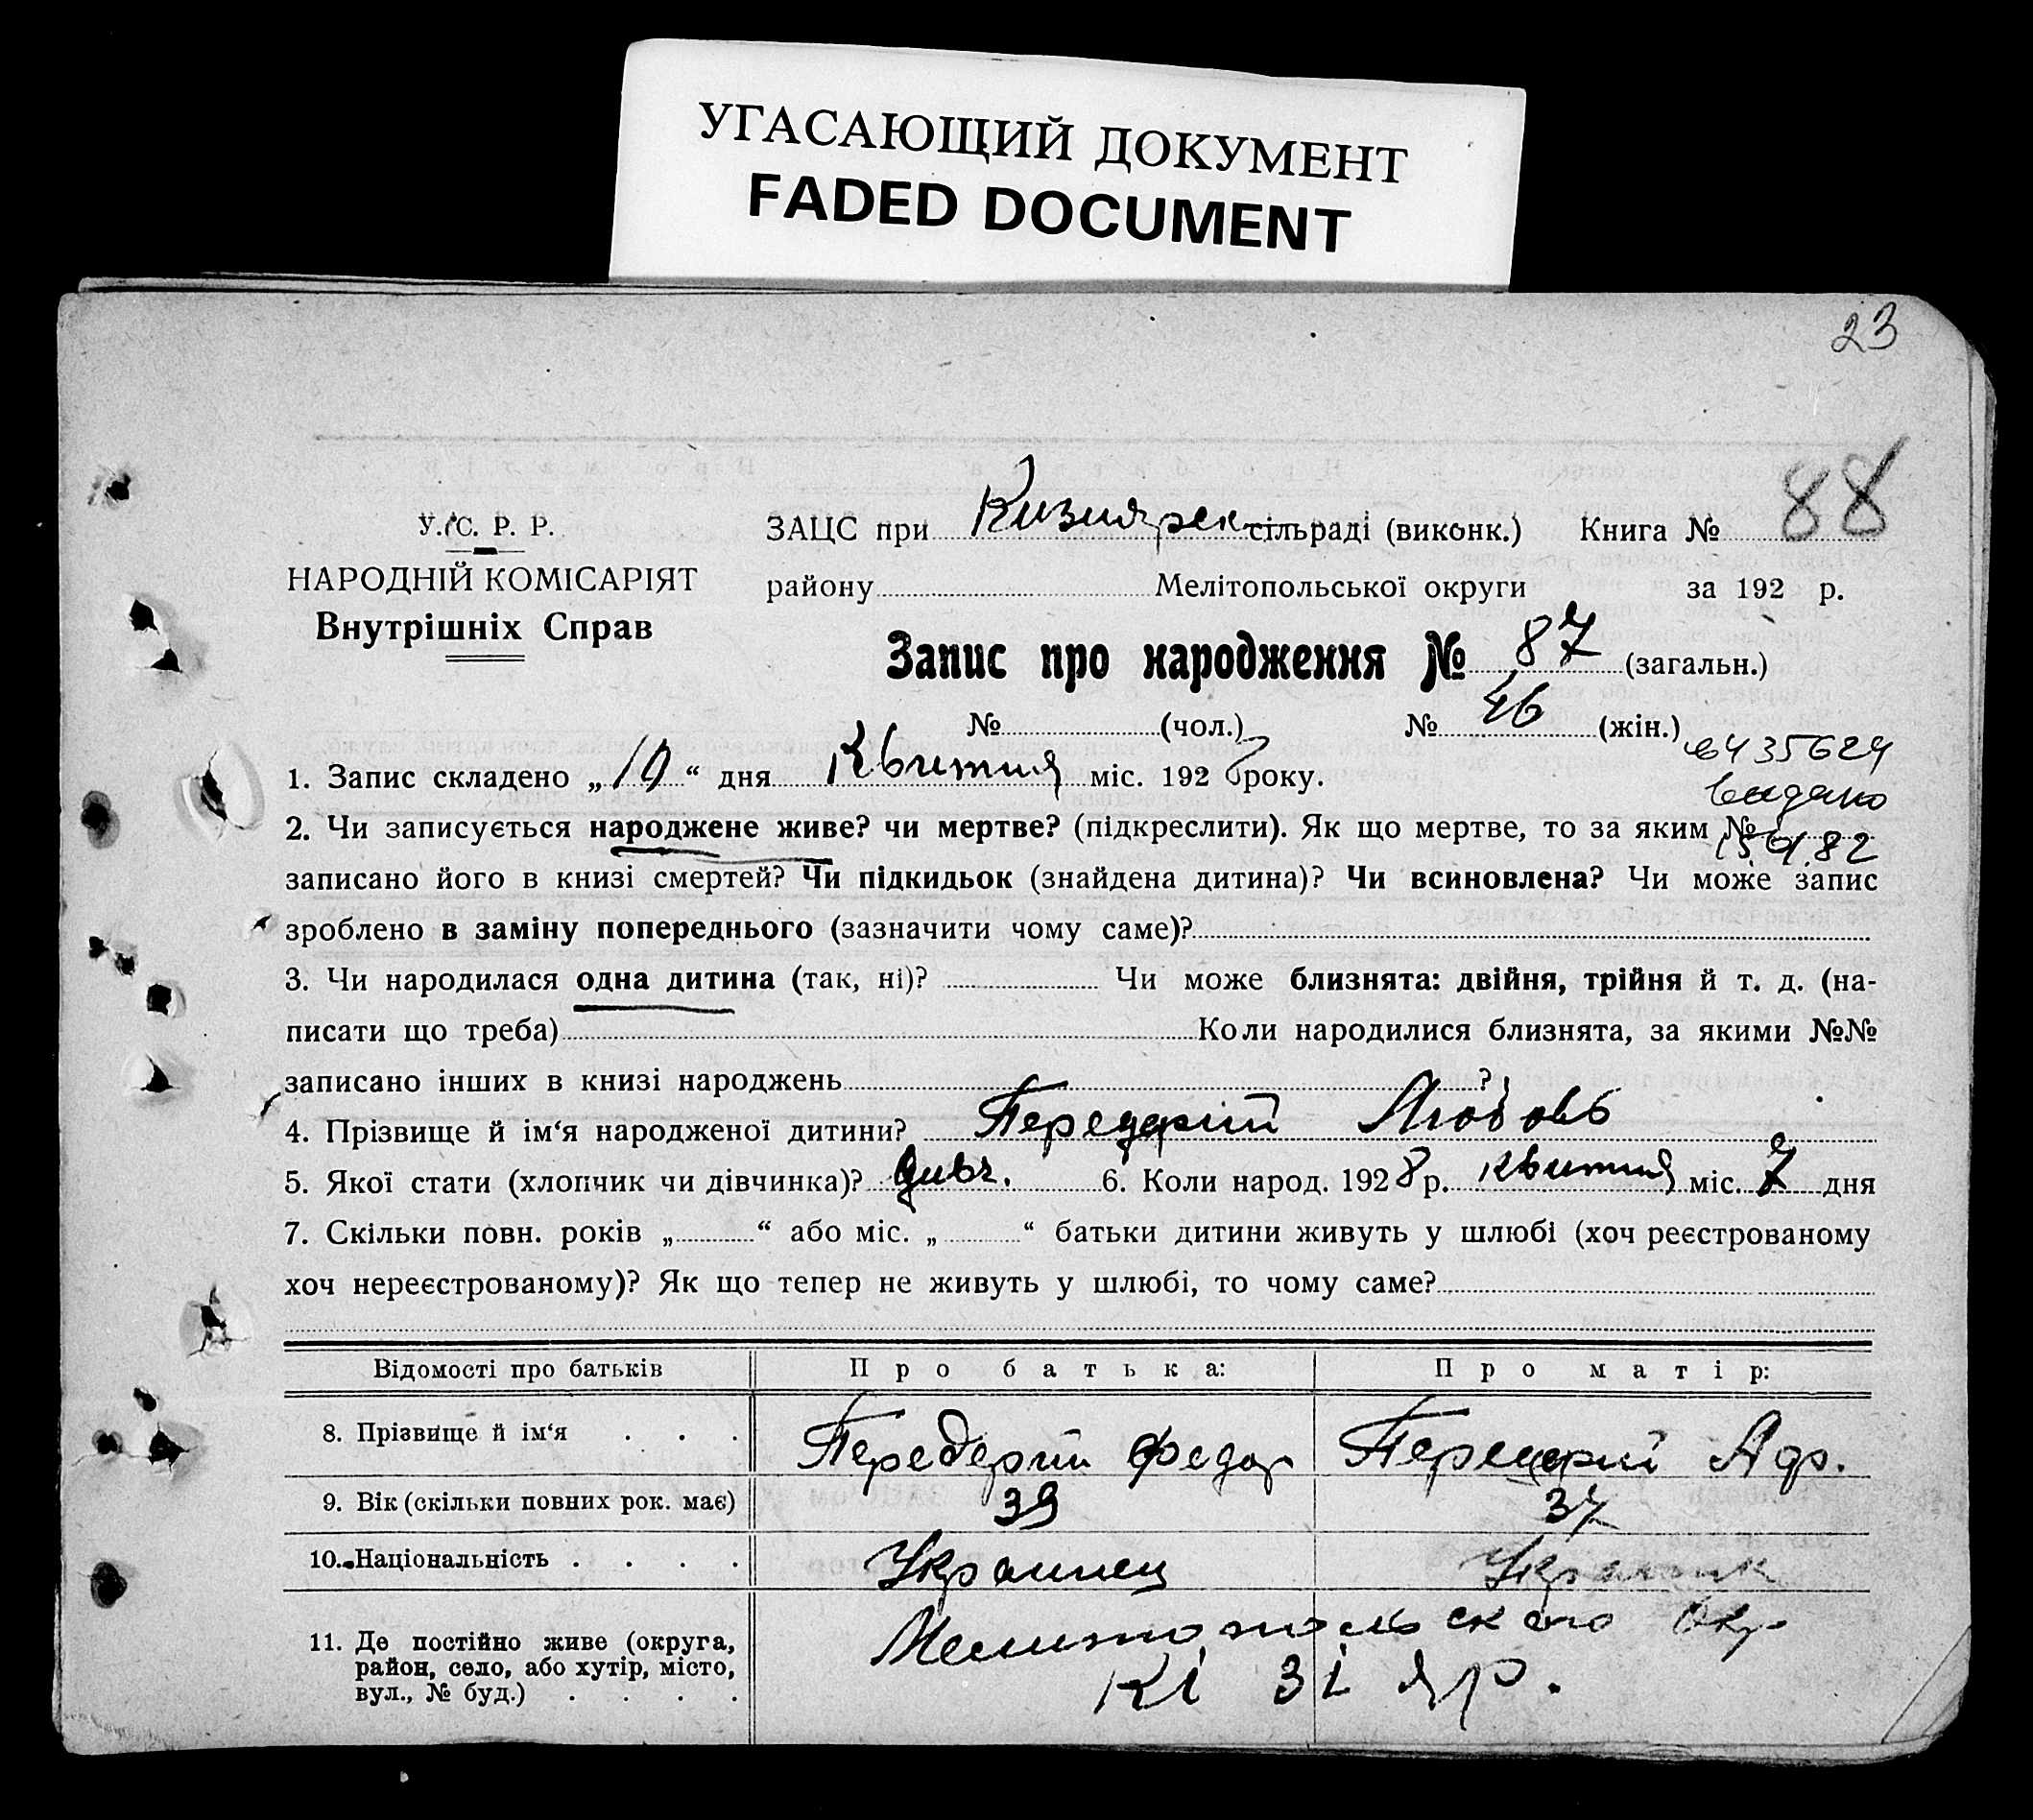 УГАСАЮЩИЙ ДОКУМЕНТ
FADED DOCUMENT
23
У. С. Р. Р.
НАРОДНІЙ КОМІСАРІЯТ
Внутрішніх Справ
ЗАЦС при Кизиярск сільраді (виконк.) Книга № 88
району Мелітопольської округи за 192 р.
Запис про народження № 87 (загальн.)
№ (чол.) № 46 (жін.)
1. Запис складено „10“ дня Квитня міс. 192 8 року.
6435624
видано
2. Чи записується народжене живе? чи мертве? (підкреслити). Як що мертве, то за яким №
записано його в книзі смертей? Чи підкидьок (знайдена дитина)? Чи всиновлена? Чи може запис
зроблено в заміну попереднього (зазначити чому саме)?
3. Чи народилася одна дитина (так, ні)? Чи може близнята: двійня, трійня й т. д. (на-
писати що треба) Коли народилися близнята, за якими №№
записано інших в книзі народжень ?
4. Прізвище й ім‘я народженої дитини? Передерій Любовь
5. Якої стати (хлопчик чи дівчинка)? дивч. 6. Коли народ. 1928 р. квитня міс. 7 дня
7. Скільки повн. років „ “ або міс. „ “ батьки дитини живуть у шлюбі (хоч реєстрованому
хоч нереєстрованому)? Як що тепер не живуть у шлюбі, то чому саме?
Відомості про батьків Про батька: Про матір:
8. Прізвище й ім‘я . . . Передерій Федор Передерий
9. Вік (скільки повних рок. має) 39 37
10. Національність . . . . Украинец Украинк
11. Де постійно живе (округа,
район, село, або хутір, місто,
вул., № буд.) . . . .
Мелитопольского Окр
Кі зі яр.